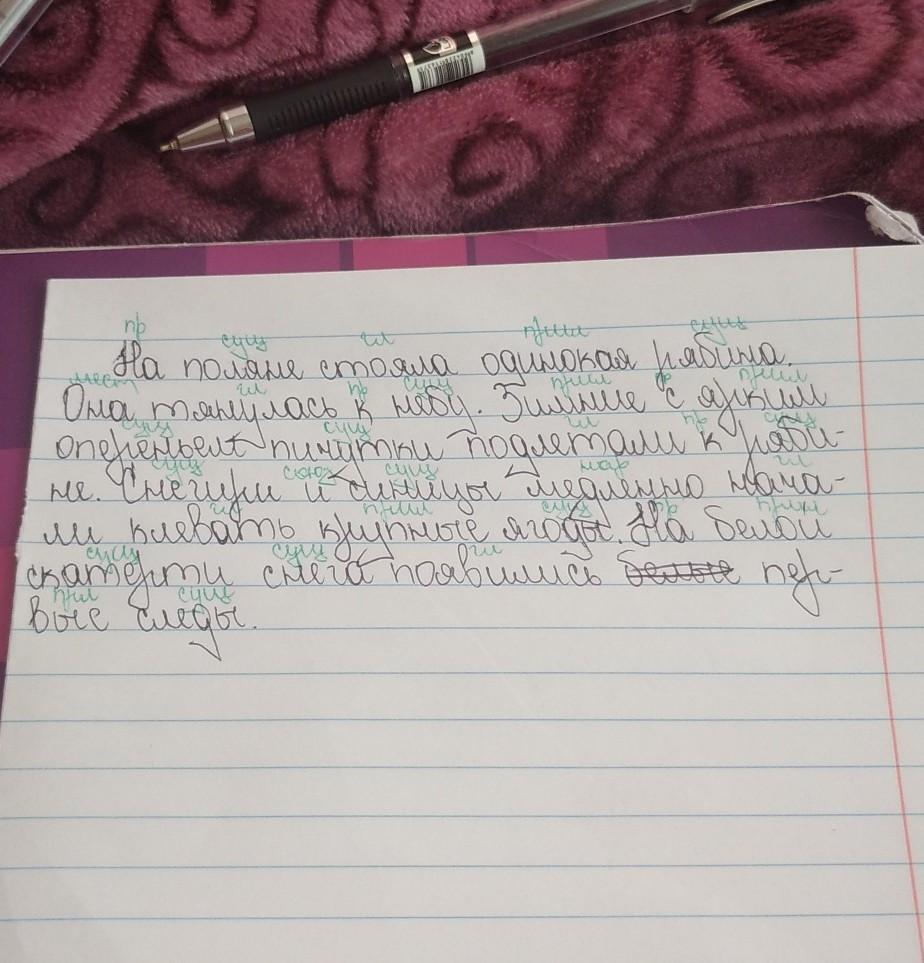 пр сущ гл прил сущ
На поляне стояла одинокая рябина.
мест гл пр сущ прил пр прил
Она тянулась к небу. Зимние с ярким
сущ сущ гл пр сущ
опереньем пичужки подлетали к ряби-
сущ союз сущ нар гл
не. Снегири и синицы медленно нача-
гл прил сущ пр прил
ли клевать крупные ягоды. На белой
сущ сущ гл
скатерти снега появились белые пер-
прил сущ
вые следы.